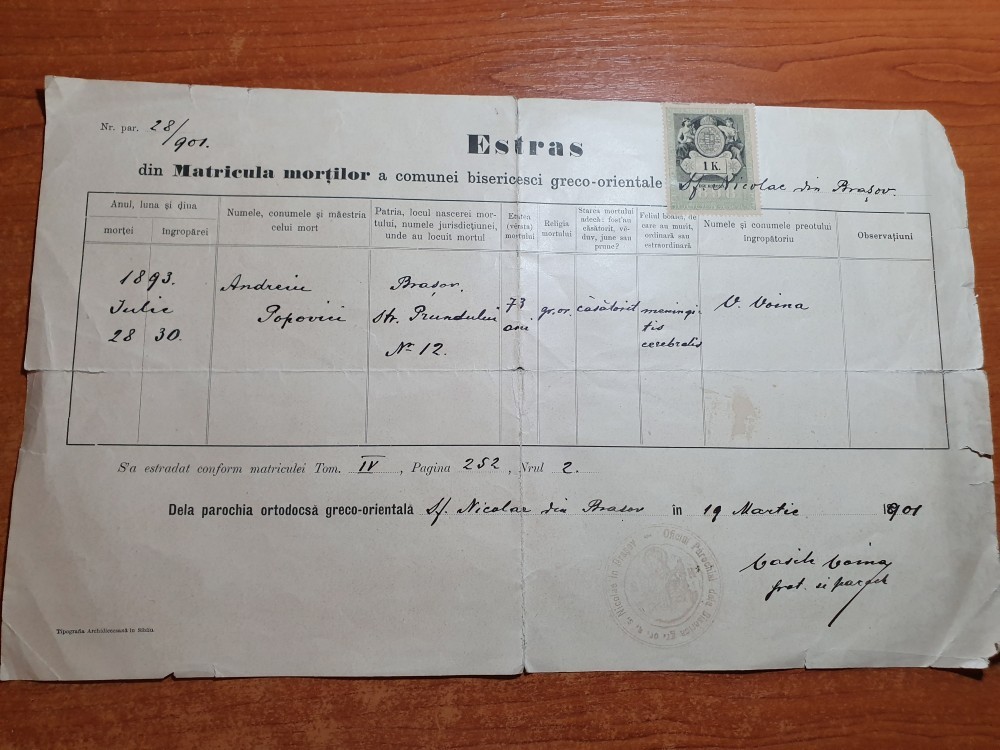 Nr. par. 28/901.
Estras
din Matricula morților a comunei bisericesci greco-orientale Sf. Nicolae din Brașov.
1 K.
Anul, luna și ḑiua
morței
îngropărei
Numele, conumele și măestria
celui mort
Patria, locul nascerei mor-
tului, numele jurisdicțiunei,
unde au locuit mortul
Etatea
(vêrsta)
mortului
Religia
mortului
Starea mortului
adecă: fost'au
căsătorit, vê-
duv, june sau
prune?
Feliul boalei, de
care au murit,
ordinară sau
estraordinară
Numele și conumele preotului
îngropătoriu
Observațiuni
1893.
Iulie
28 30.
Andreiu
Popovici
Brașov.
Str. Prundului
No 12.
73
ani
gr. or.
căsătorit
meningi-
tis
cerebralis
V. Voina
S'a estradat conform matriculei Tom. IV, Pagina 252, Nrul 2.
Dela parochia ortodocsă greco-orientală Sf. Nicolae din Brasov in 19 Martie 1901
Vasile Voina
paroch
Tipografia Archidiecesană în Sibiiu